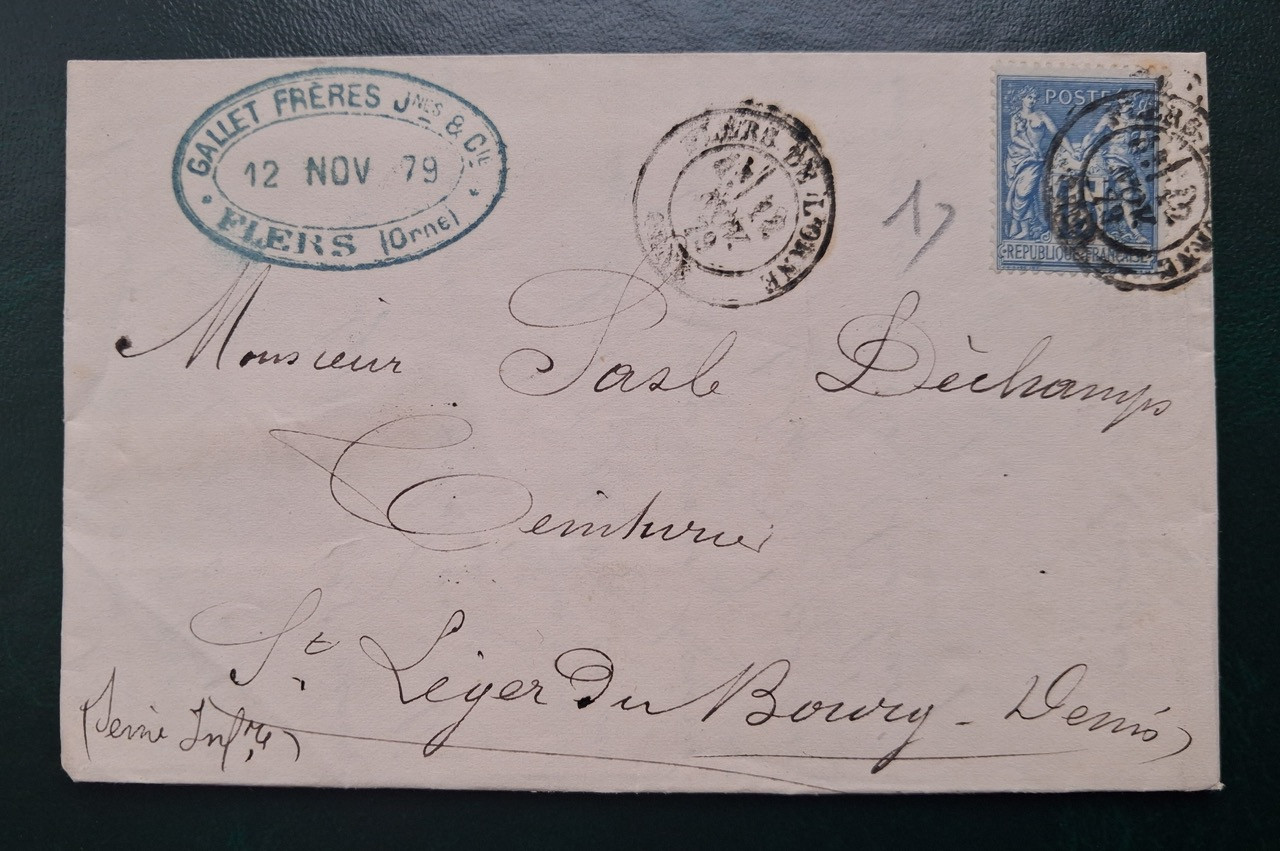 GALLET FRÈRES Jnes & Cie
12 NOV 79
FLERS (Orne)
FLERS DE L'ORNE
12
NOV
79
1)
POSTES
REPUBLIQUE FRANÇAISE
Monsieur Pasle Déchamps
Teinturier
St Léger Du Bourg-Denis
(Seine Infre)